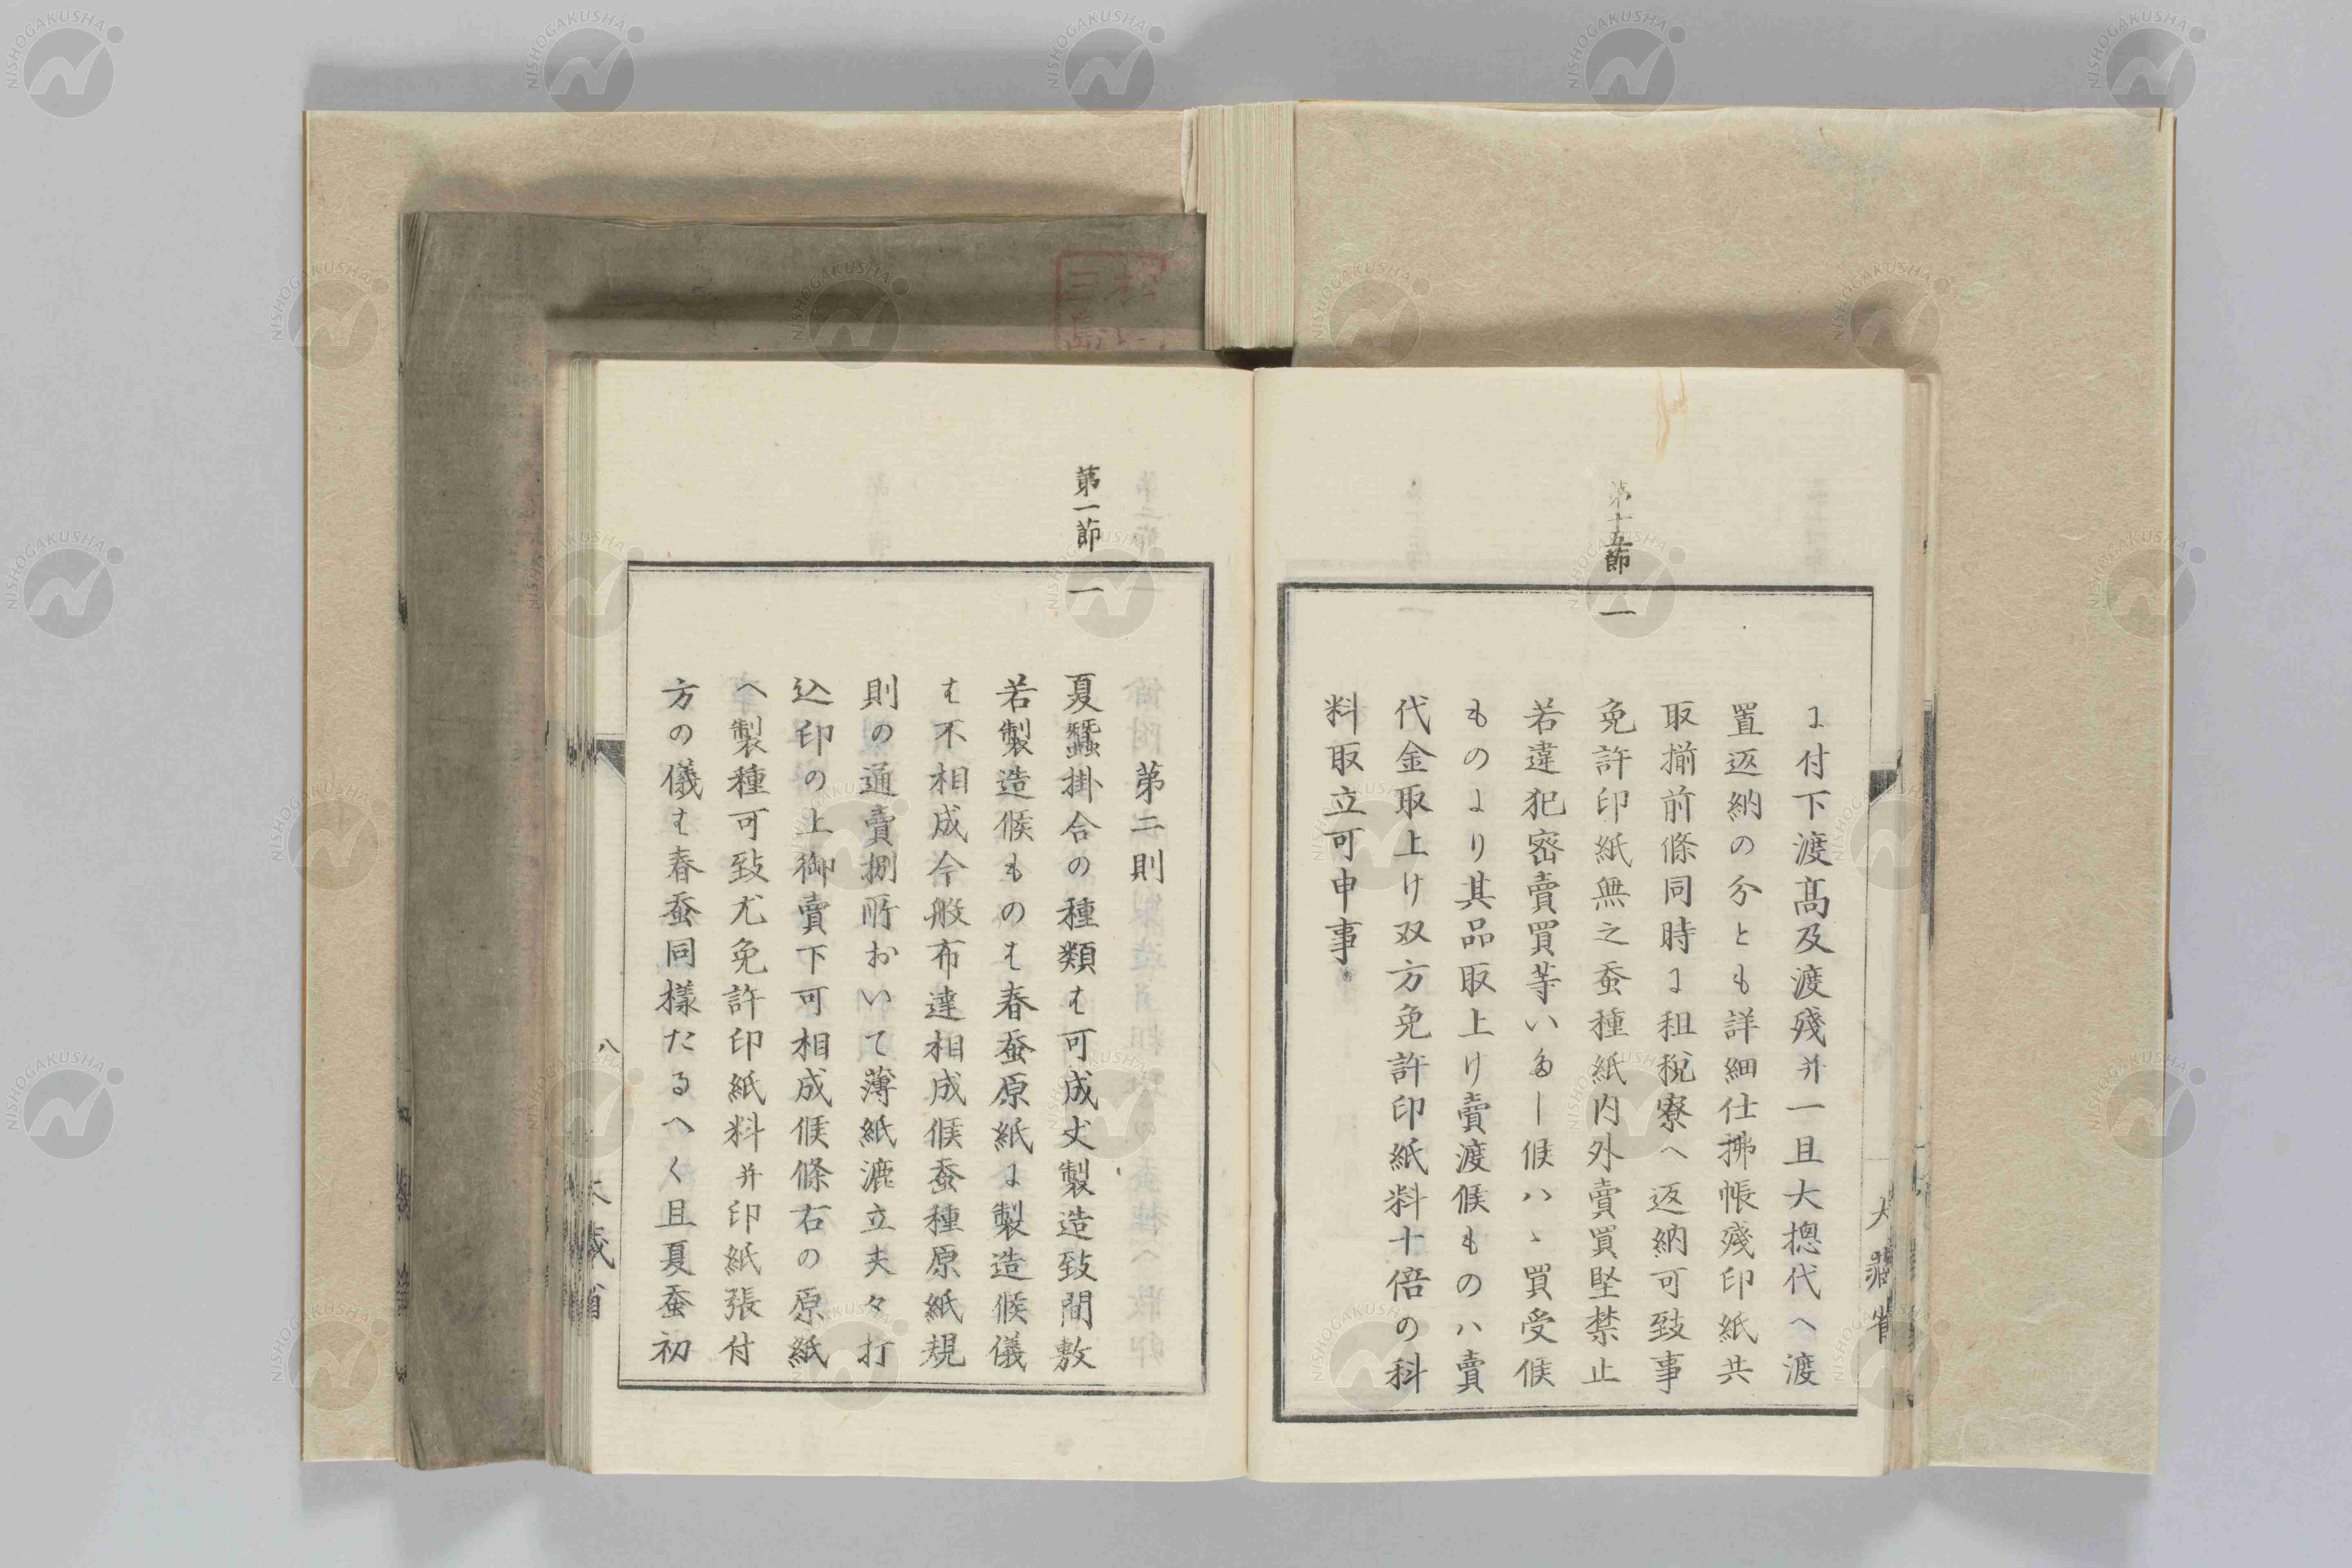 ニ付下渡髙及渡殘并一且大摠代へ渡
置返納の分とも詳細仕拂帳殘印紙共
取揃前條同時ニ租稅寮へ返納可致事
第十五節
一
免許印紙無之蚕種紙内外賣買堅禁止
若違犯密賣買等いたし候ハヽ買受候
ものより其品取上け賣渡候ものハ賣
代金取上け双方免許印紙料十倍の科
料取立可申事
大藏省
第二則
第一節
一
夏蠶掛合の種類は可成丈製造致間敷
若製造候ものは春蚕原紙に製造候儀
は不相成今般布達相成候蚕種原紙規
則の通賣捌所おいて薄紙漉立夫々打
込印の上御賣下可相成候條右の原紙
へ製種可致尤免許印紙料并印紙張付
方の儀は春蚕同樣たるへく且夏蚕初
八
大藏省
NISHOGAKUSHA